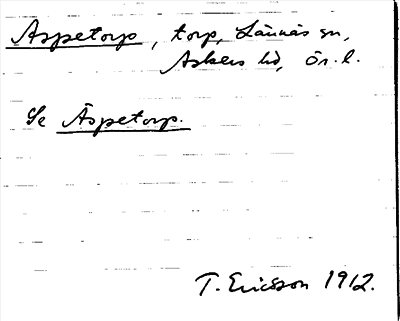 Aspetorp, torp, Lännäs sn,
Askers hd, Ör. l.
Se Äspetorp.
T. Ericsson 1912.